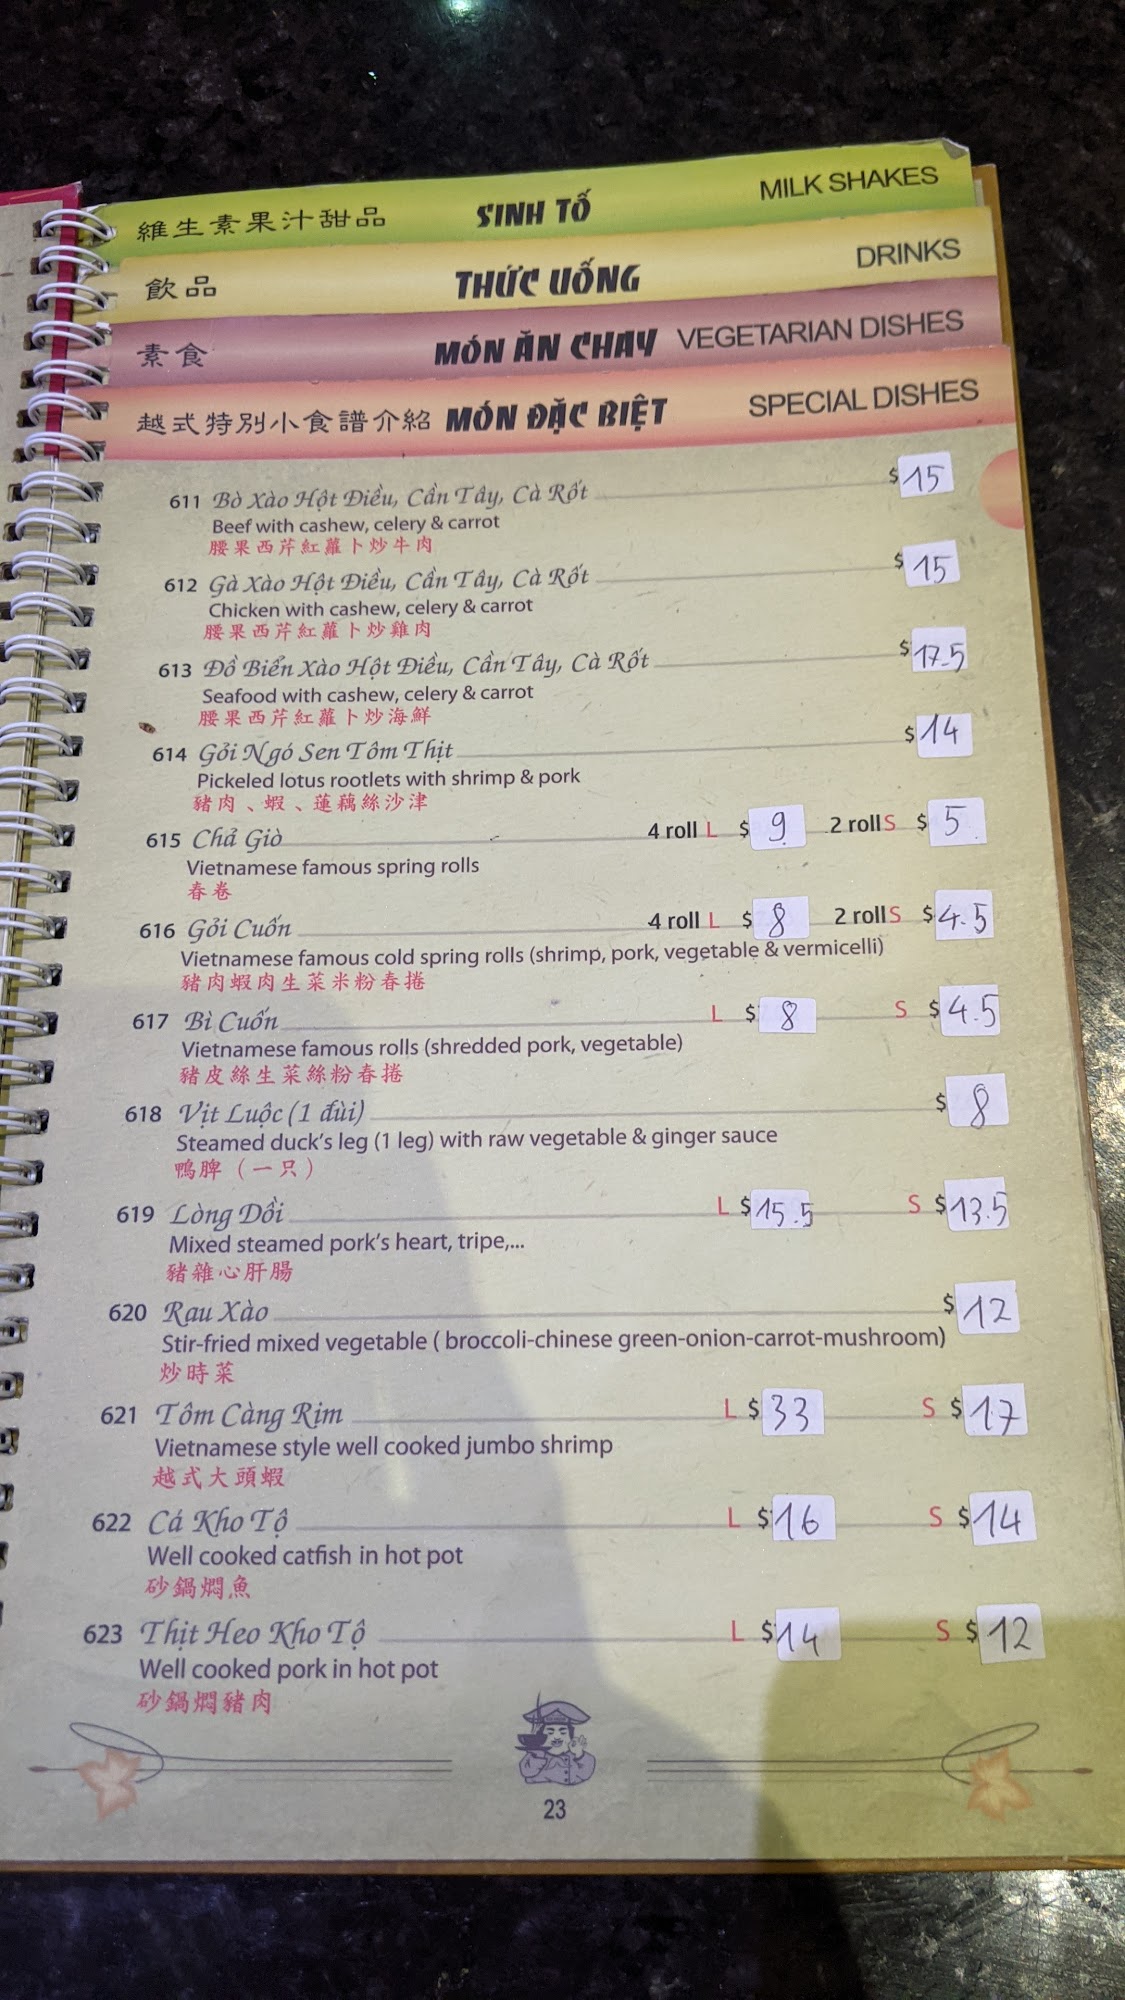 維生素果汁甜品 SINH TỐ MILK SHAKES
飲品 THỨC UỐNG DRINKS
素食 MÓN ĂN CHAY VEGETARIAN DISHES
越式特別小食譜介紹 MÓN ĐẶC BIỆT SPECIAL DISHES
611 Bò Xào Hột Điều, Cần Tây, Cà Rốt $ 15
Beef with cashew, celery & carrot
腰果西芹紅蘿卜炒牛肉
612 Gà Xào Hột Điều, Cần Tây, Cà Rốt $ 15
Chicken with cashew, celery & carrot
腰果西芹紅蘿卜炒雞肉
613 Đồ Biển Xào Hột Điều, Cần Tây, Cà Rốt $ 17.5
Seafood with cashew, celery & carrot
腰果西芹紅蘿卜炒海鮮
614 Gỏi Ngó Sen Tôm Thịt $ 14
Pickeled lotus rootlets with shrimp & pork
豬肉、蝦、蓮藕絲沙津
615 Chả Giò 4 roll L $ 9 2 roll S $ 5
Vietnamese famous spring rolls
春卷
616 Gỏi Cuốn 4 roll L $ 8 2 roll S $ 4.5
Vietnamese famous cold spring rolls (shrimp, pork, vegetable & vermicelli)
豬肉蝦肉生菜米粉春捲
617 Bì Cuốn L $ 8 S $ 4.5
Vietnamese famous rolls (shredded pork, vegetable)
豬皮絲生菜絲粉春捲
618 Vịt Luộc (1 đùi) $ 8
Steamed duck's leg (1 leg) with raw vegetable & ginger sauce
鴨脾（一只）
619 Lòng Dồi L $ 15.5 S $ 13.5
Mixed steamed pork's heart, tripe,...
豬雜心肝腸
620 Rau Xào $ 12
Stir-fried mixed vegetable ( broccoli-chinese green-onion-carrot-mushroom)
炒時菜
621 Tôm Càng Rim L $ 33 S $ 17
Vietnamese style well cooked jumbo shrimp
越式大頭蝦
622 Cá Kho Tộ L $ 16 S $ 14
Well cooked catfish in hot pot
砂鍋燜魚
623 Thịt Heo Kho Tộ L $ 14 S $ 12
Well cooked pork in hot pot
砂鍋燜豬肉
23